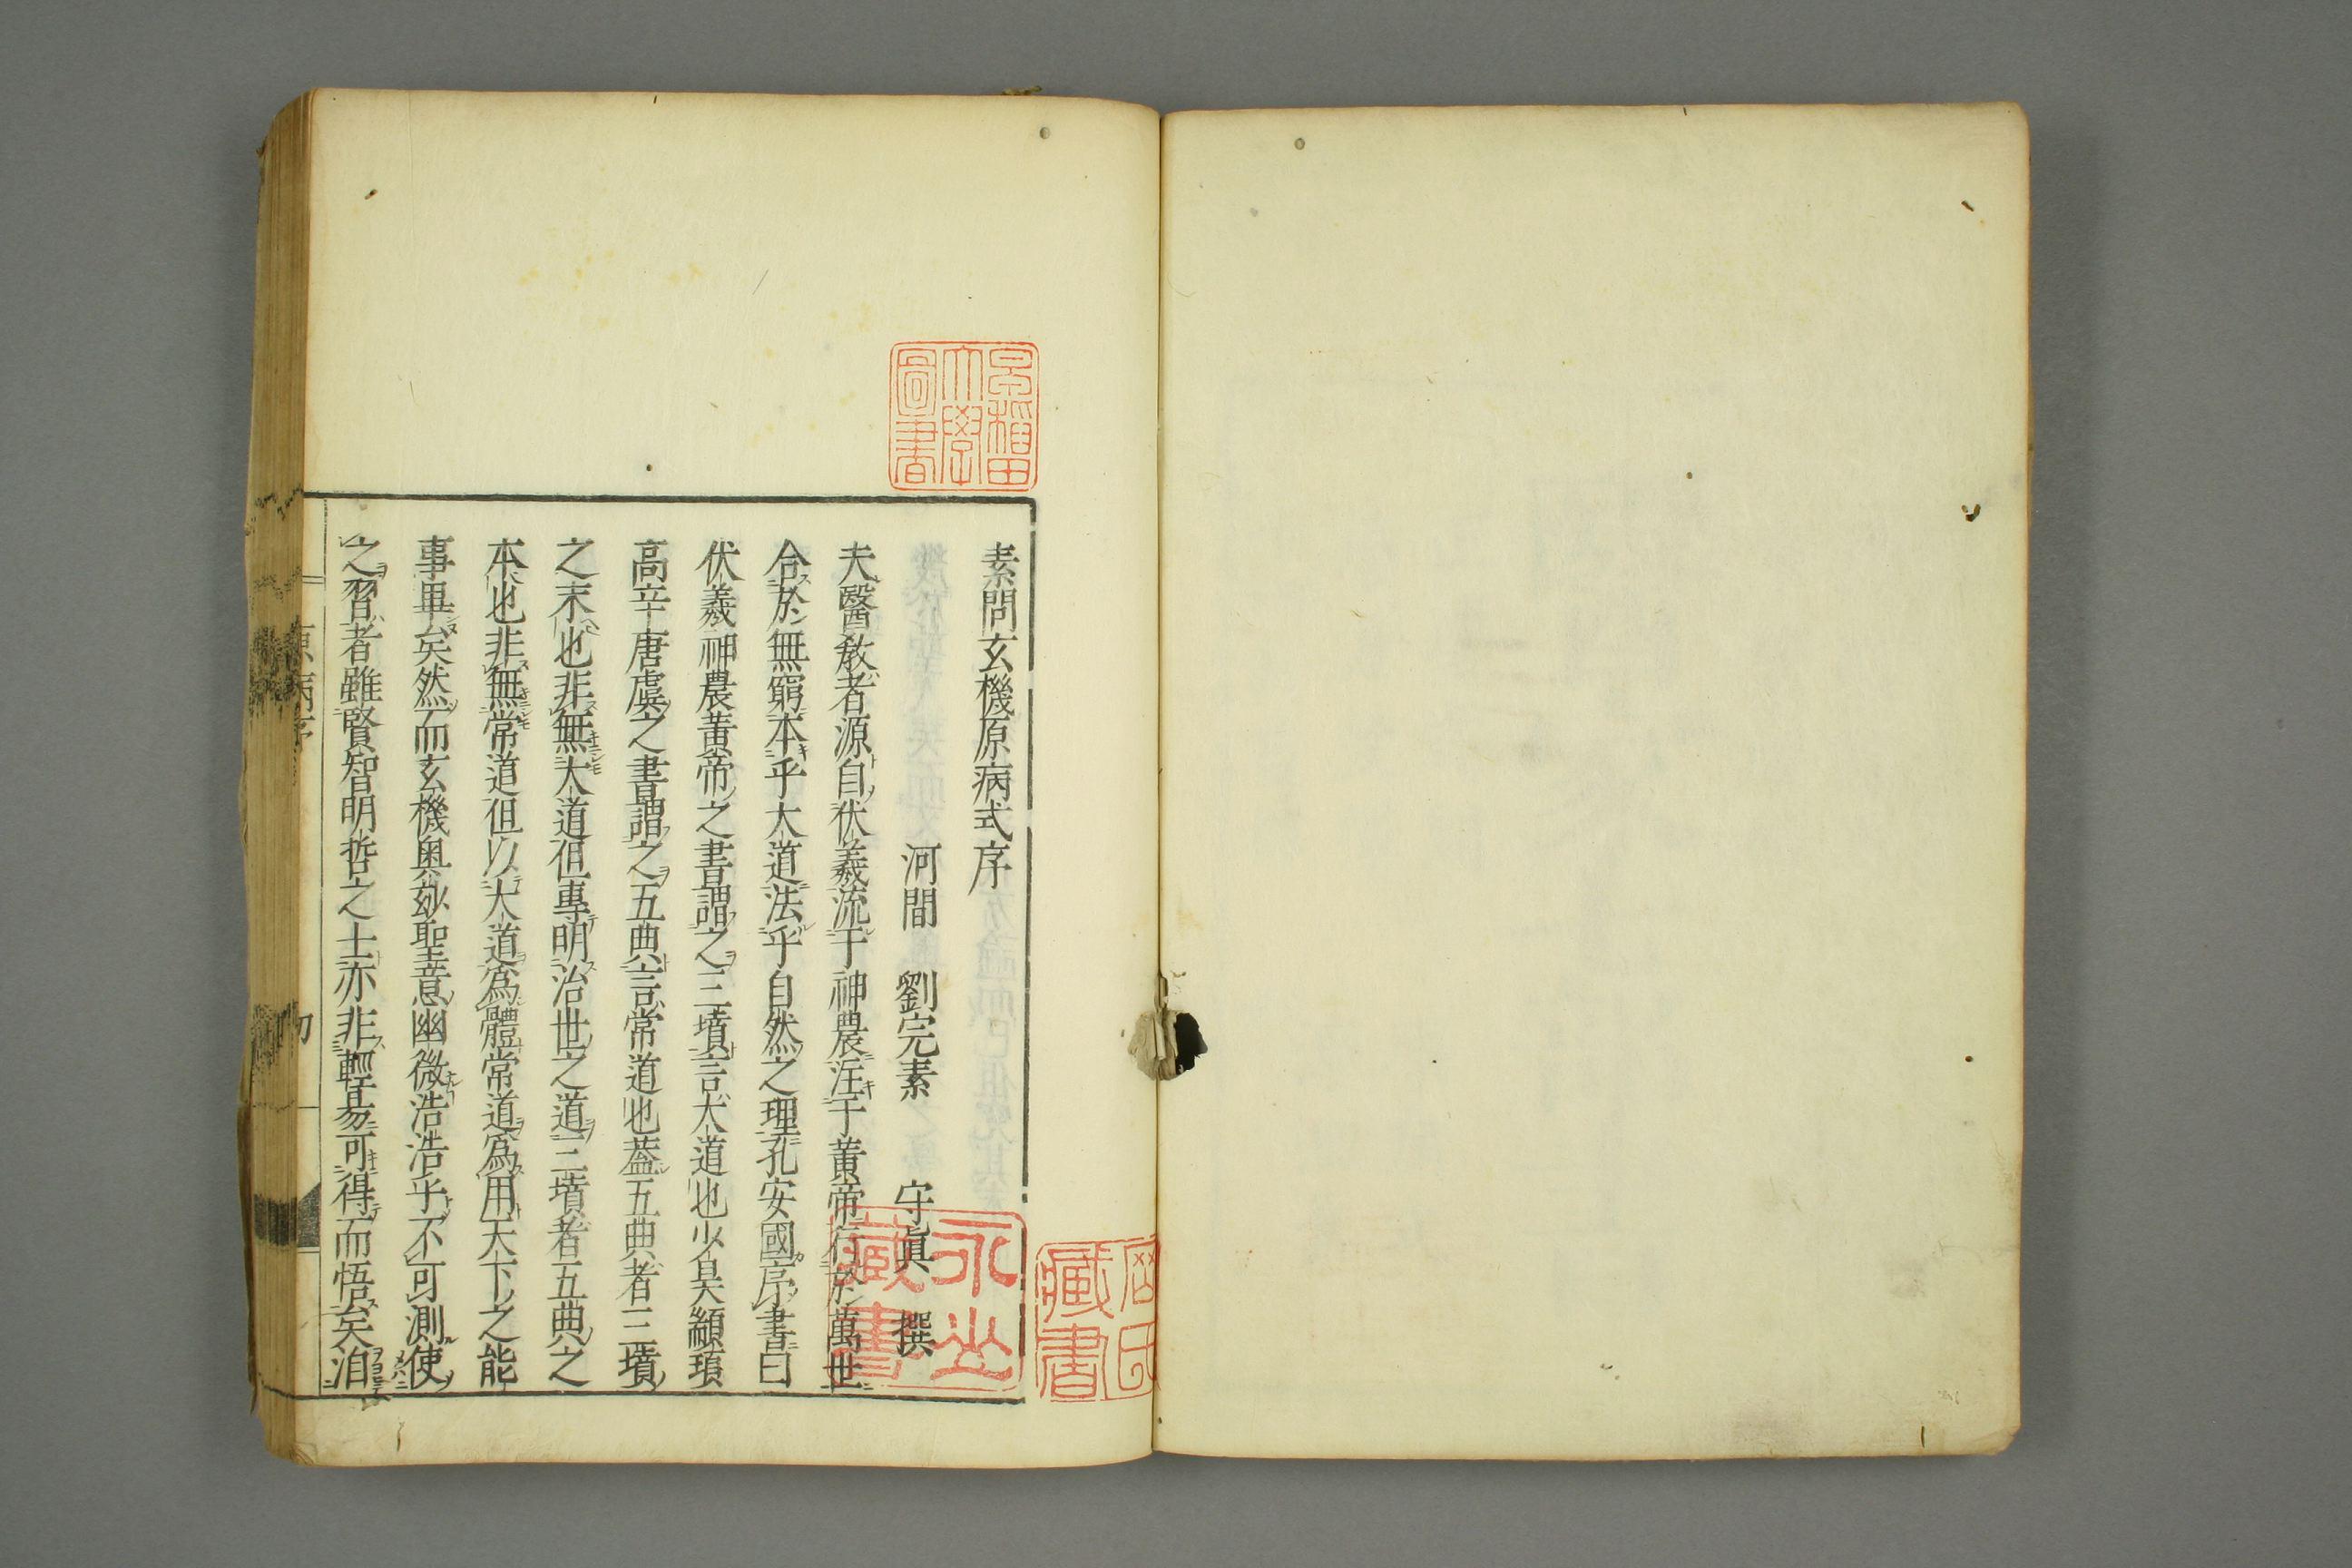 早稲田
大學
圖書
素問玄機原病式序
河間　劉完素　守眞　撰
夫醫教者源自伏羲流于神農注于黃帝行於萬世
合於無窮本乎大道法乎自然之理孔安國序書曰
伏羲神農黃帝之書謂之三墳言大道也少昊顓頊
高辛唐虞之書謂之五典言常道也蓋五典者三墳
之末也非無大道但專明治世之道三墳者五典之
本也非無常道但以大道爲體常道爲用天下之能
事畢矣然而玄機奧玅聖意幽微浩浩乎不可測使
之習者雖賢智明哲之士亦非輕易可得而悟矣洎
藏書
藏書